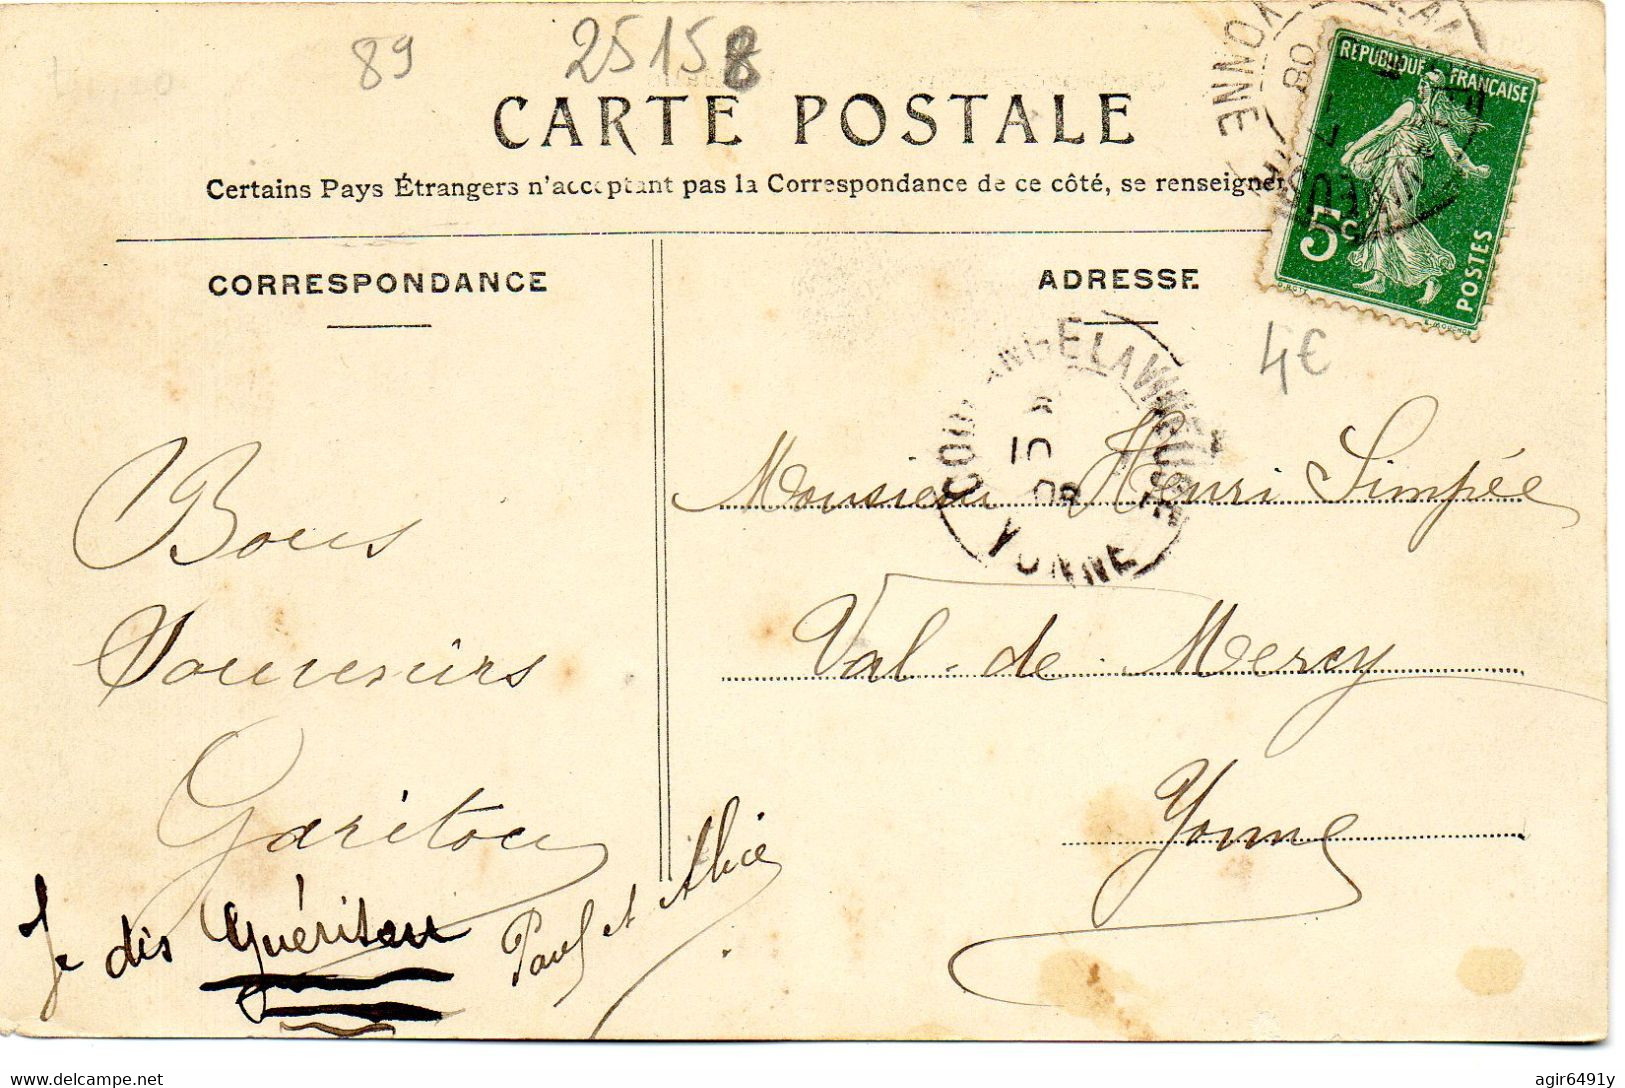 89
25158
CARTE POSTALE
Certains Pays Étrangers n'acceptant pas la Correspondance de ce côté, se renseigner
REPUBLIQUE FRANÇAISE
5c
POSTES
YONNE
08
CORRESPONDANCE
ADRESSE
4€
YONNE
08
Bons
Souvenirs
Garitou
Je dis Guériton
Paul et Alice
Monsieur Henri Simpée
Val-de-Mercy
Yonne
www.delcampe.net
agir6491y